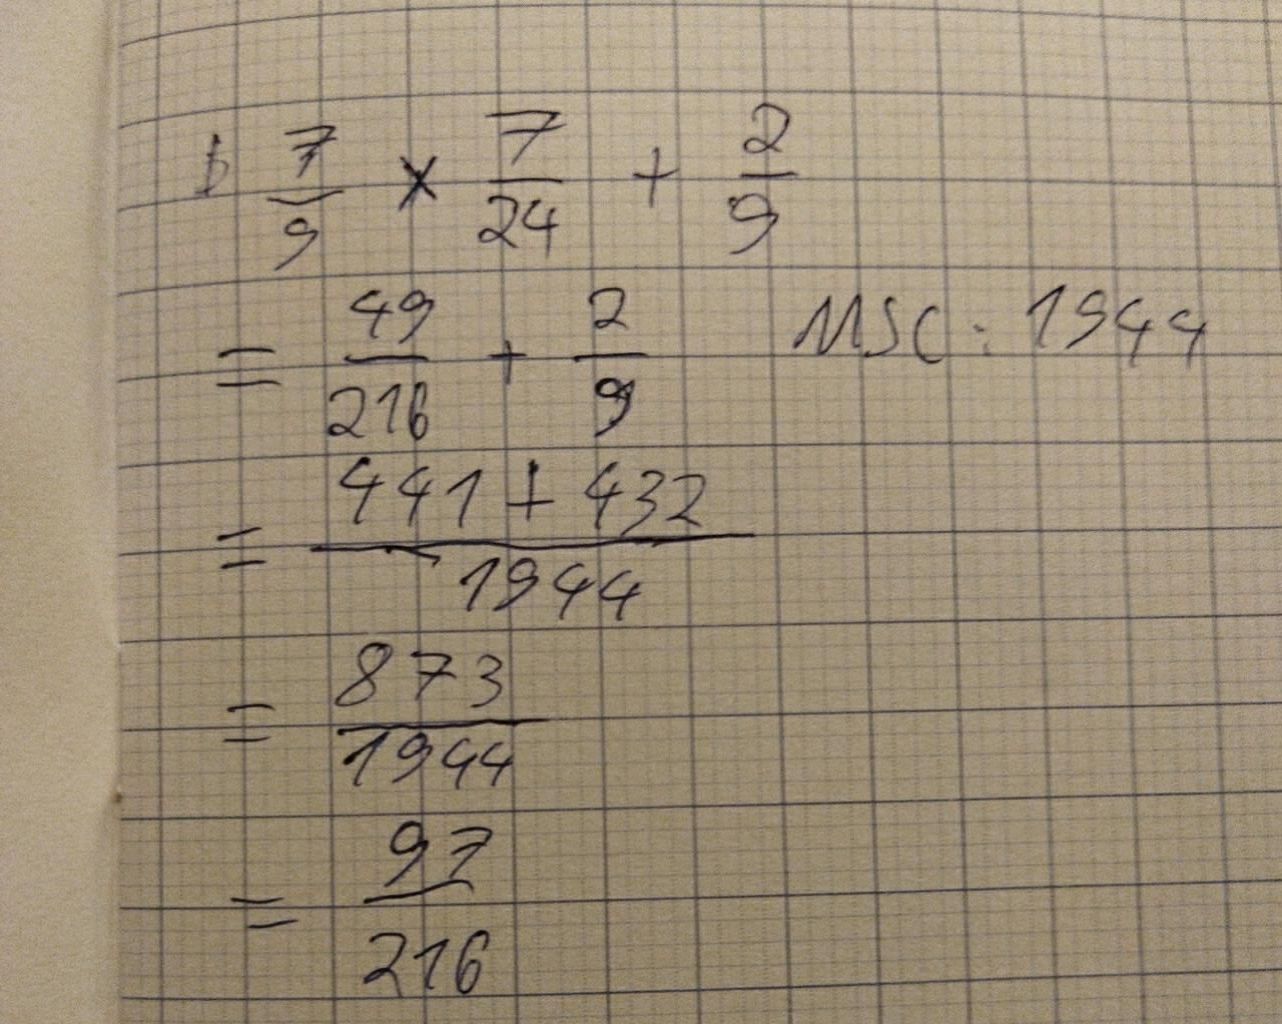 b 7/9 × 7/24 + 2/9
= 49/216 + 2/9 MSC : 1944
= 441 + 432 / 1944
= 873/1944
= 97/216